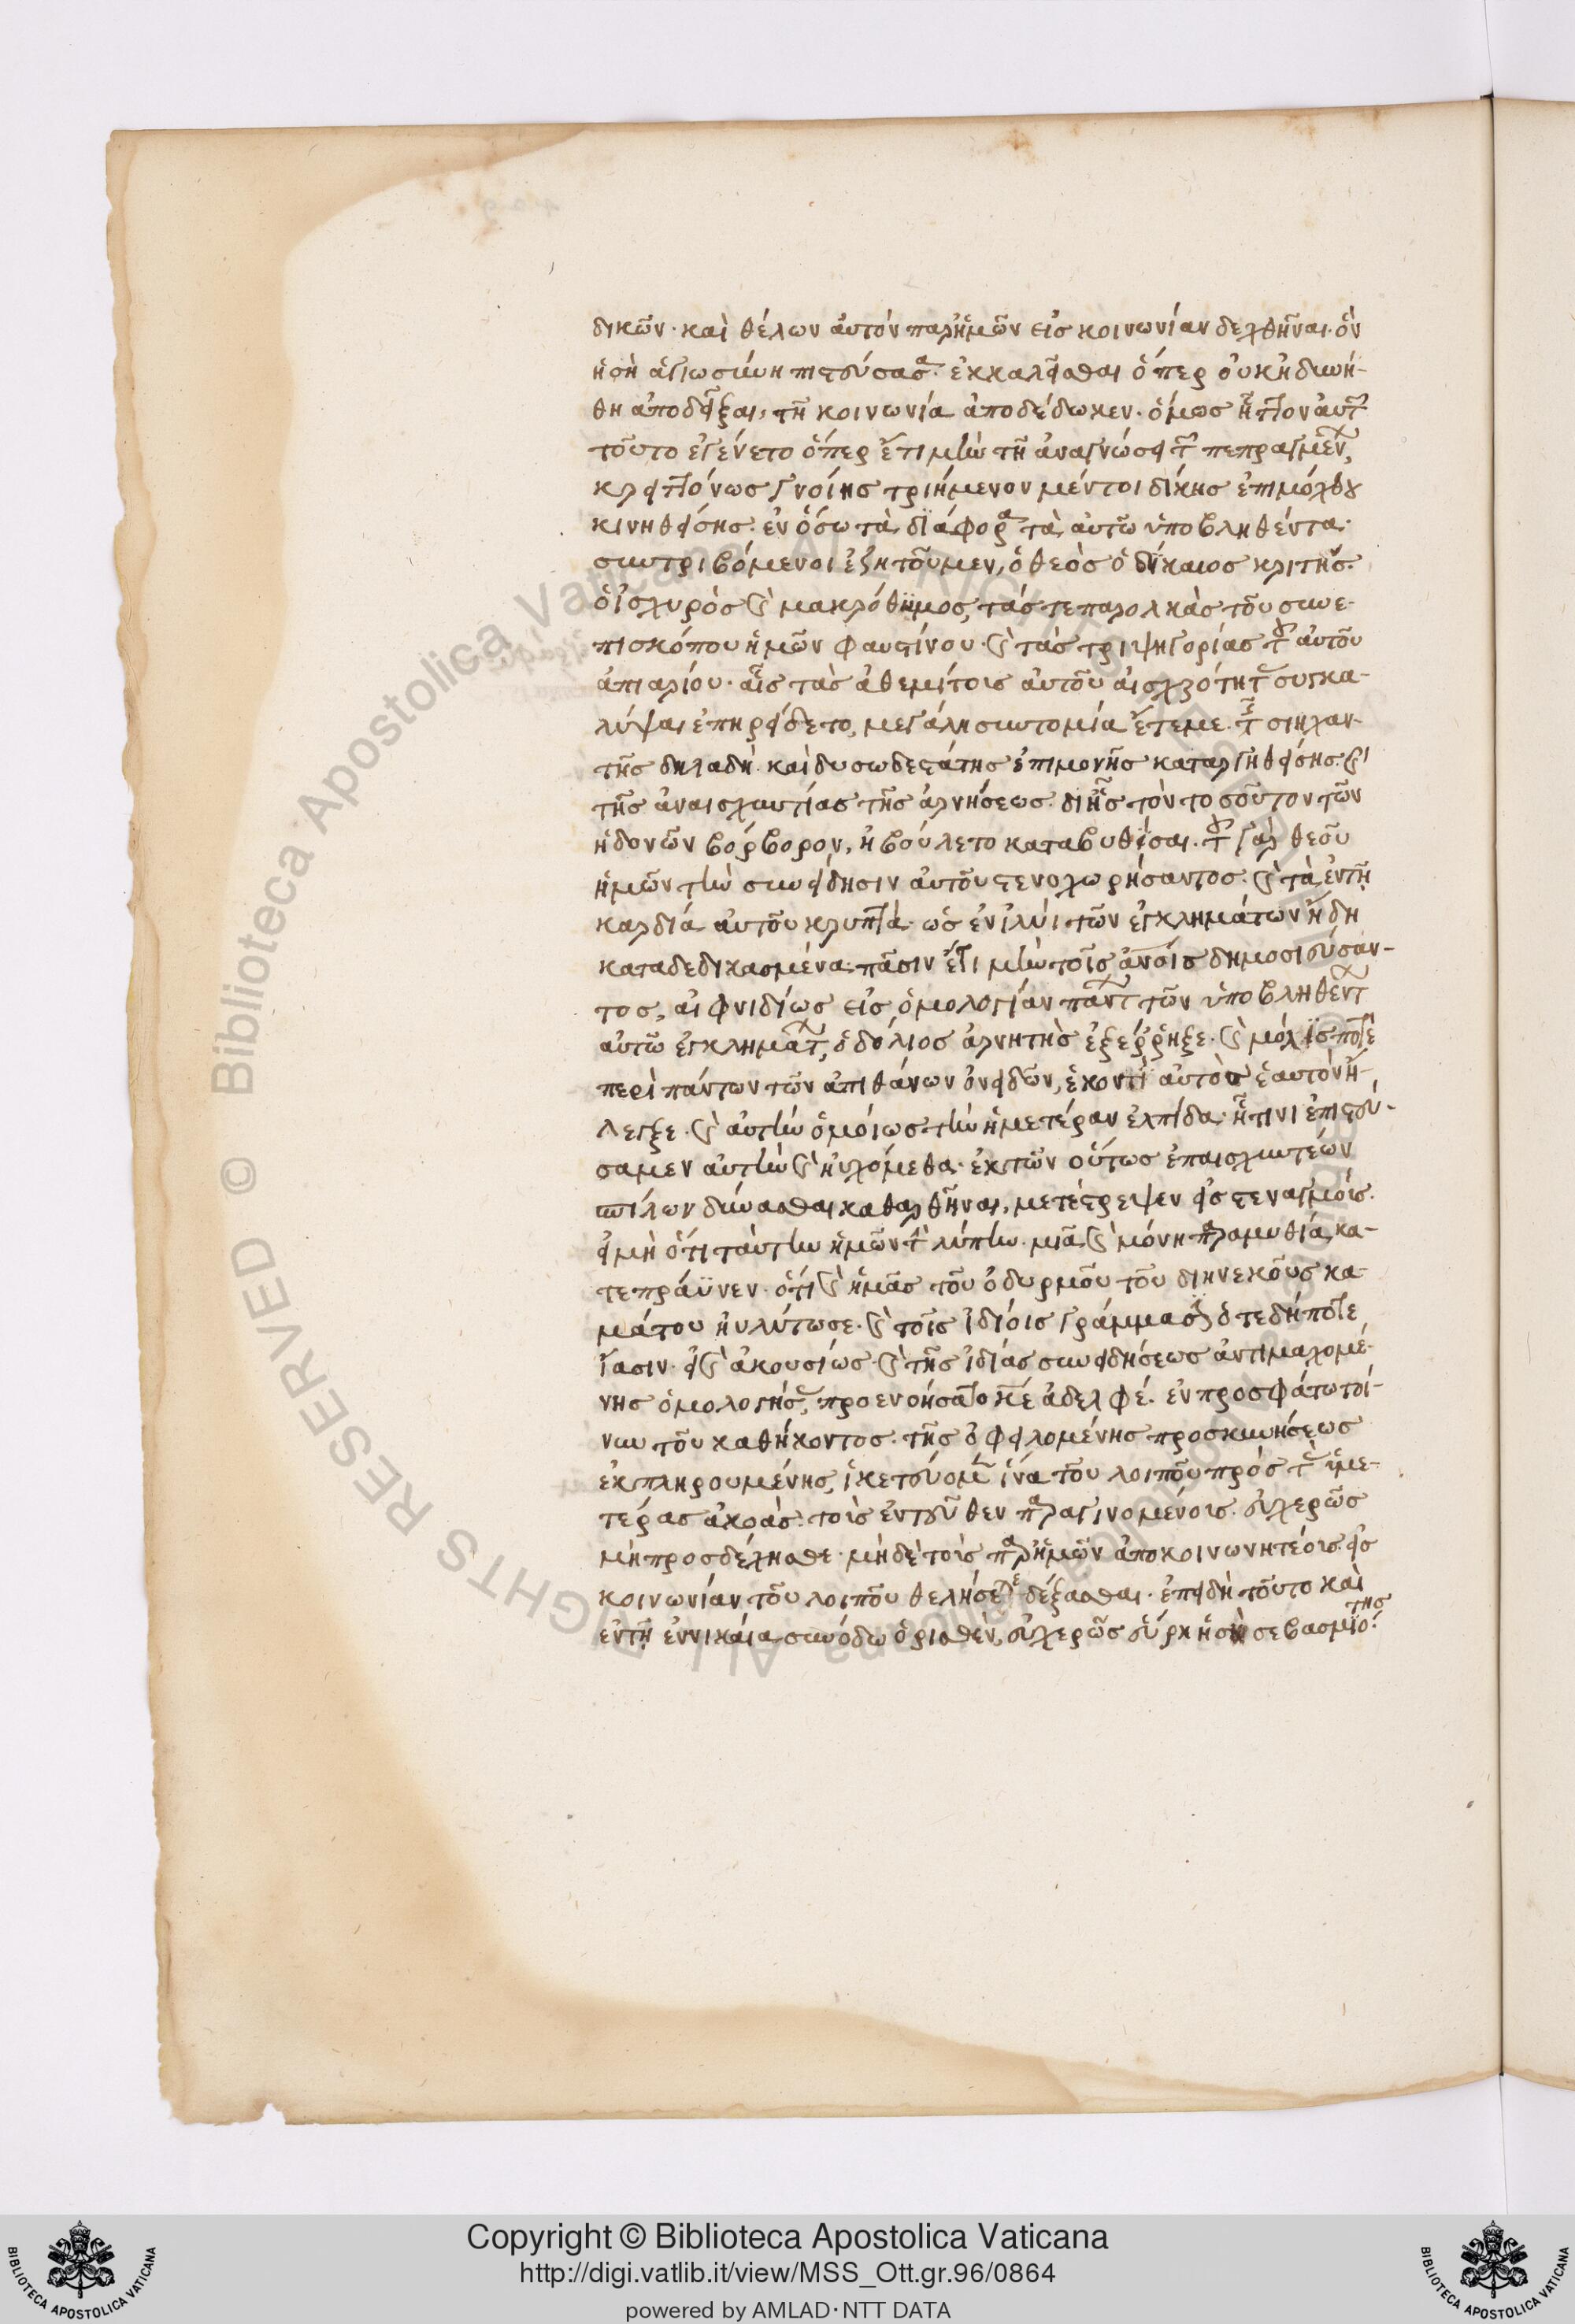 δικῶν· καὶ θέλων αὐτὸν παρ' ἡμῶν εἰς κοινωνίαν δεχθῆναι· ὃν
ἡ σὴ ἁγιωσύνη πιστεύσασα ἐκκαλεῖσθαι ὅπερ οὐκ ἠδυνή-
θη ἀποδεῖξαι, τῇ κοινωνίᾳ ἀποδέδωκεν· ὅμως ἧττον αὐτῷ
τοῦτο ἐγένετο ὅπερ ἔτι μὴν τῇ ἀναγνώσει τῶν πεπραγμένων,
γνοίης τριήμερον μέντοι δίκης ἐπιμόχθου
κινηθείσης· ἐν ὅσῳ τὰ διάφορα τὰ αὐτῷ ὑποβληθέντα
συντριβόμενοι ἐζητοῦμεν, ὁ θεὸς ὁ δίκαιος κριτής·
ὁ ἰσχυρὸς καὶ μακρόθυμος, τάς τε παρολκὰς τοῦ συνε-
πισκόπου ἡμῶν φαυστίνου· καὶ τὰς τριψηγορίας τοῦ αὐτοῦ
ἀπιαρίου· αἷς τὰς ἀθεμίτοις αὐτοῦ αἰσχρότητας συγκα-
λύψαι ἐπηρείδετο, μεγάλη συντομία ἔτεμε· τῆς σιηχαν-
τῆς δηλαδὴ καὶ δυσωδεστάτης ἐπιμονῆς καταργηθείσης· καὶ
τῆς ἀναισχυντίας τῆς ἀρνήσεως· δι' ἧς τὸν τοσοῦτον τῶν
ἡδονῶν βόρβορον, ἠβούλετο καταβυθίσαι· τοῦ γὰρ θεοῦ
ἡμῶν τὴν συνείδησιν αὐτοῦ στενοχωρήσαντος· καὶ τὰ ἐν τῇ
καρδίᾳ αὐτοῦ κρυπτὰ ὡς ἐν ἰλύι τῶν ἐγκλημάτων ἤδη
καταδεδικασμένα· πᾶσιν ἔτι μὴν τοῖς ἀνοις δημοσιεύσαν-
τος, αἰφνιδίως εἰς ὁμολογίαν πάντων τῶν ὑποβληθέντων
αὐτῷ ἐγκλημάτων, ὁ δόλιος ἀρνητὴς ἐξέρρηξε· καὶ μόλις ποτὲ
περὶ πάντων τῶν ἀπιθάνων ὀνειδῶν, ἑκοντὶ αὐτὸς ἑαυτὸν ἤ-
λεγξε· καὶ αὐτὴν ὁμοίως τὴν ἡμετέραν ἐλπίδα· ᾗτινι ἐπιστεύ-
σαμεν αὐτὴν καὶ ηὐχόμεθα· ἐκ τῶν οὕτως ἐπαισχυντέων
σπίλων δύνασθαι καθαρθῆναι, μετέστρεψεν εἰς στεναγμούς·
εἰ μὴ ὅτι ταύτην ἡμῶν τὴν λύπην μιᾷ καὶ μόνῃ παραμυθίᾳ κα-
τεπράϋνεν· ὅτι καὶ ἡμᾶς τοῦ ὀδυρμοῦ τοῦ διηνεκοῦς κα-
μάτου ηὐλύτωσε· καὶ τοῖς ἰδίοις γράμμασιν ὁτεδήποτε
ἴασιν· εἰ καὶ ἀκουσίως· καὶ τῆς ἰδίας συνειδήσεως ἀντιμαχομέ-
νης ὁμολογήσας, προενοήσατο κε ἀδελφέ· ἐν προσφάτῳ τοί-
νυν τοῦ καθήκοντος τῆς ὀφειλομένης προσκυνήσεως
ἐκπληρουμένης, ἱκετεύομεν ἵνα τοῦ λοιποῦ πρὸς τὰς ὑμε-
τέρας ἀκοάς· τοὺς ἐντεῦθεν παραγινομένους· εὐχερῶς
μὴ προσδέχησθε· μὴ δὲ τοὺς παρ' ἡμῶν ἀποκοινωνητέους εἰς
κοινωνίαν τοῦ λοιποῦ θελήσετε δέξασθαι· ἐπειδὴ τοῦτο καὶ
ἐν τῇ ἐν νικαίᾳ συνόδῳ ὁρισθέν, εὐχερῶς εὕροι ἡ σὴ σεβασμιότης·
Copyright © Biblioteca Apostolica Vaticana
http://digi.vatlib.it/view/MSS_Ott.gr.96/0864
powered by AMLAD·NTT DATA